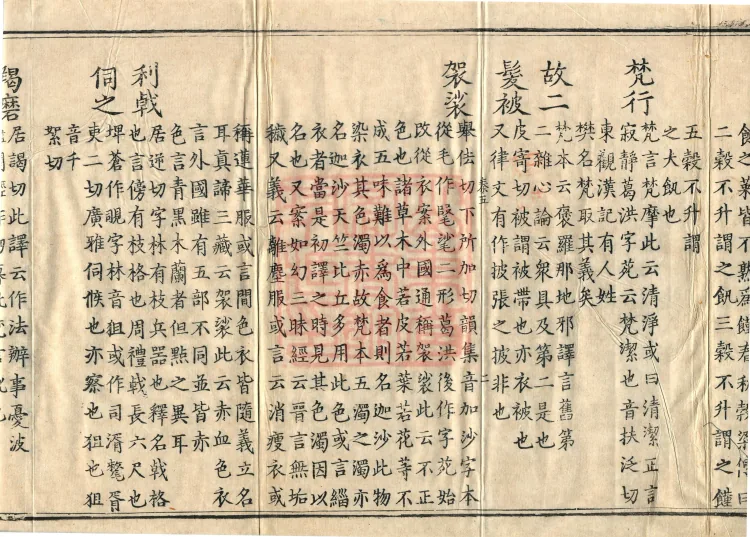 之菜皆不熟爲饉春秋穀梁傳曰
二穀不升謂之飢三穀不升謂之饉
五穀不升謂
之大飢也
梵行
梵言梵摩此云清淨或曰清潔正言
寂靜葛洪字苑云梵潔也音扶泛切
東觀漢記有人姓
樊名梵取其義矣
故二
梵本云褒羅那地邪譯言舊第
二雜心論云衆具及第二是也
髮被
皮寄切被謂被帶也亦衣被也
又律文有作披張之披非也
袈裟
舉佉切下所加切韻集音加沙字本
從毛作毠㲚二形葛洪後作字苑始
改從衣案外國通稱袈裟此云不正
色也諸草木中若皮若葉若花等不
成五味難以爲食者則名迦沙此物
染衣其色濁赤故梵本五濁之濁亦
名迦沙天竺比丘多用此色或言緇
衣者當是初譯之時見其色濁因以
名也又案如幻三昧經云晉言無垢
穢又義云離塵服或言云消瘦衣或
稱蓮華服或言間色衣皆隨義立名
耳真諦三藏云袈裟此云赤血色衣
言外國雖有五部不同並皆赤
色言青黑木蘭者但點之異耳
利戟
居逆切字林有枝兵器也釋名戟格
也言傍有枝格也周禮戟長六尺也
伺之
埤蒼作覗字林音狙或作司湑胥
東二切廣雅伺候也亦察也狙也狙
音千
絮切
羯磨
居謁切此譯云作法辦事憂波